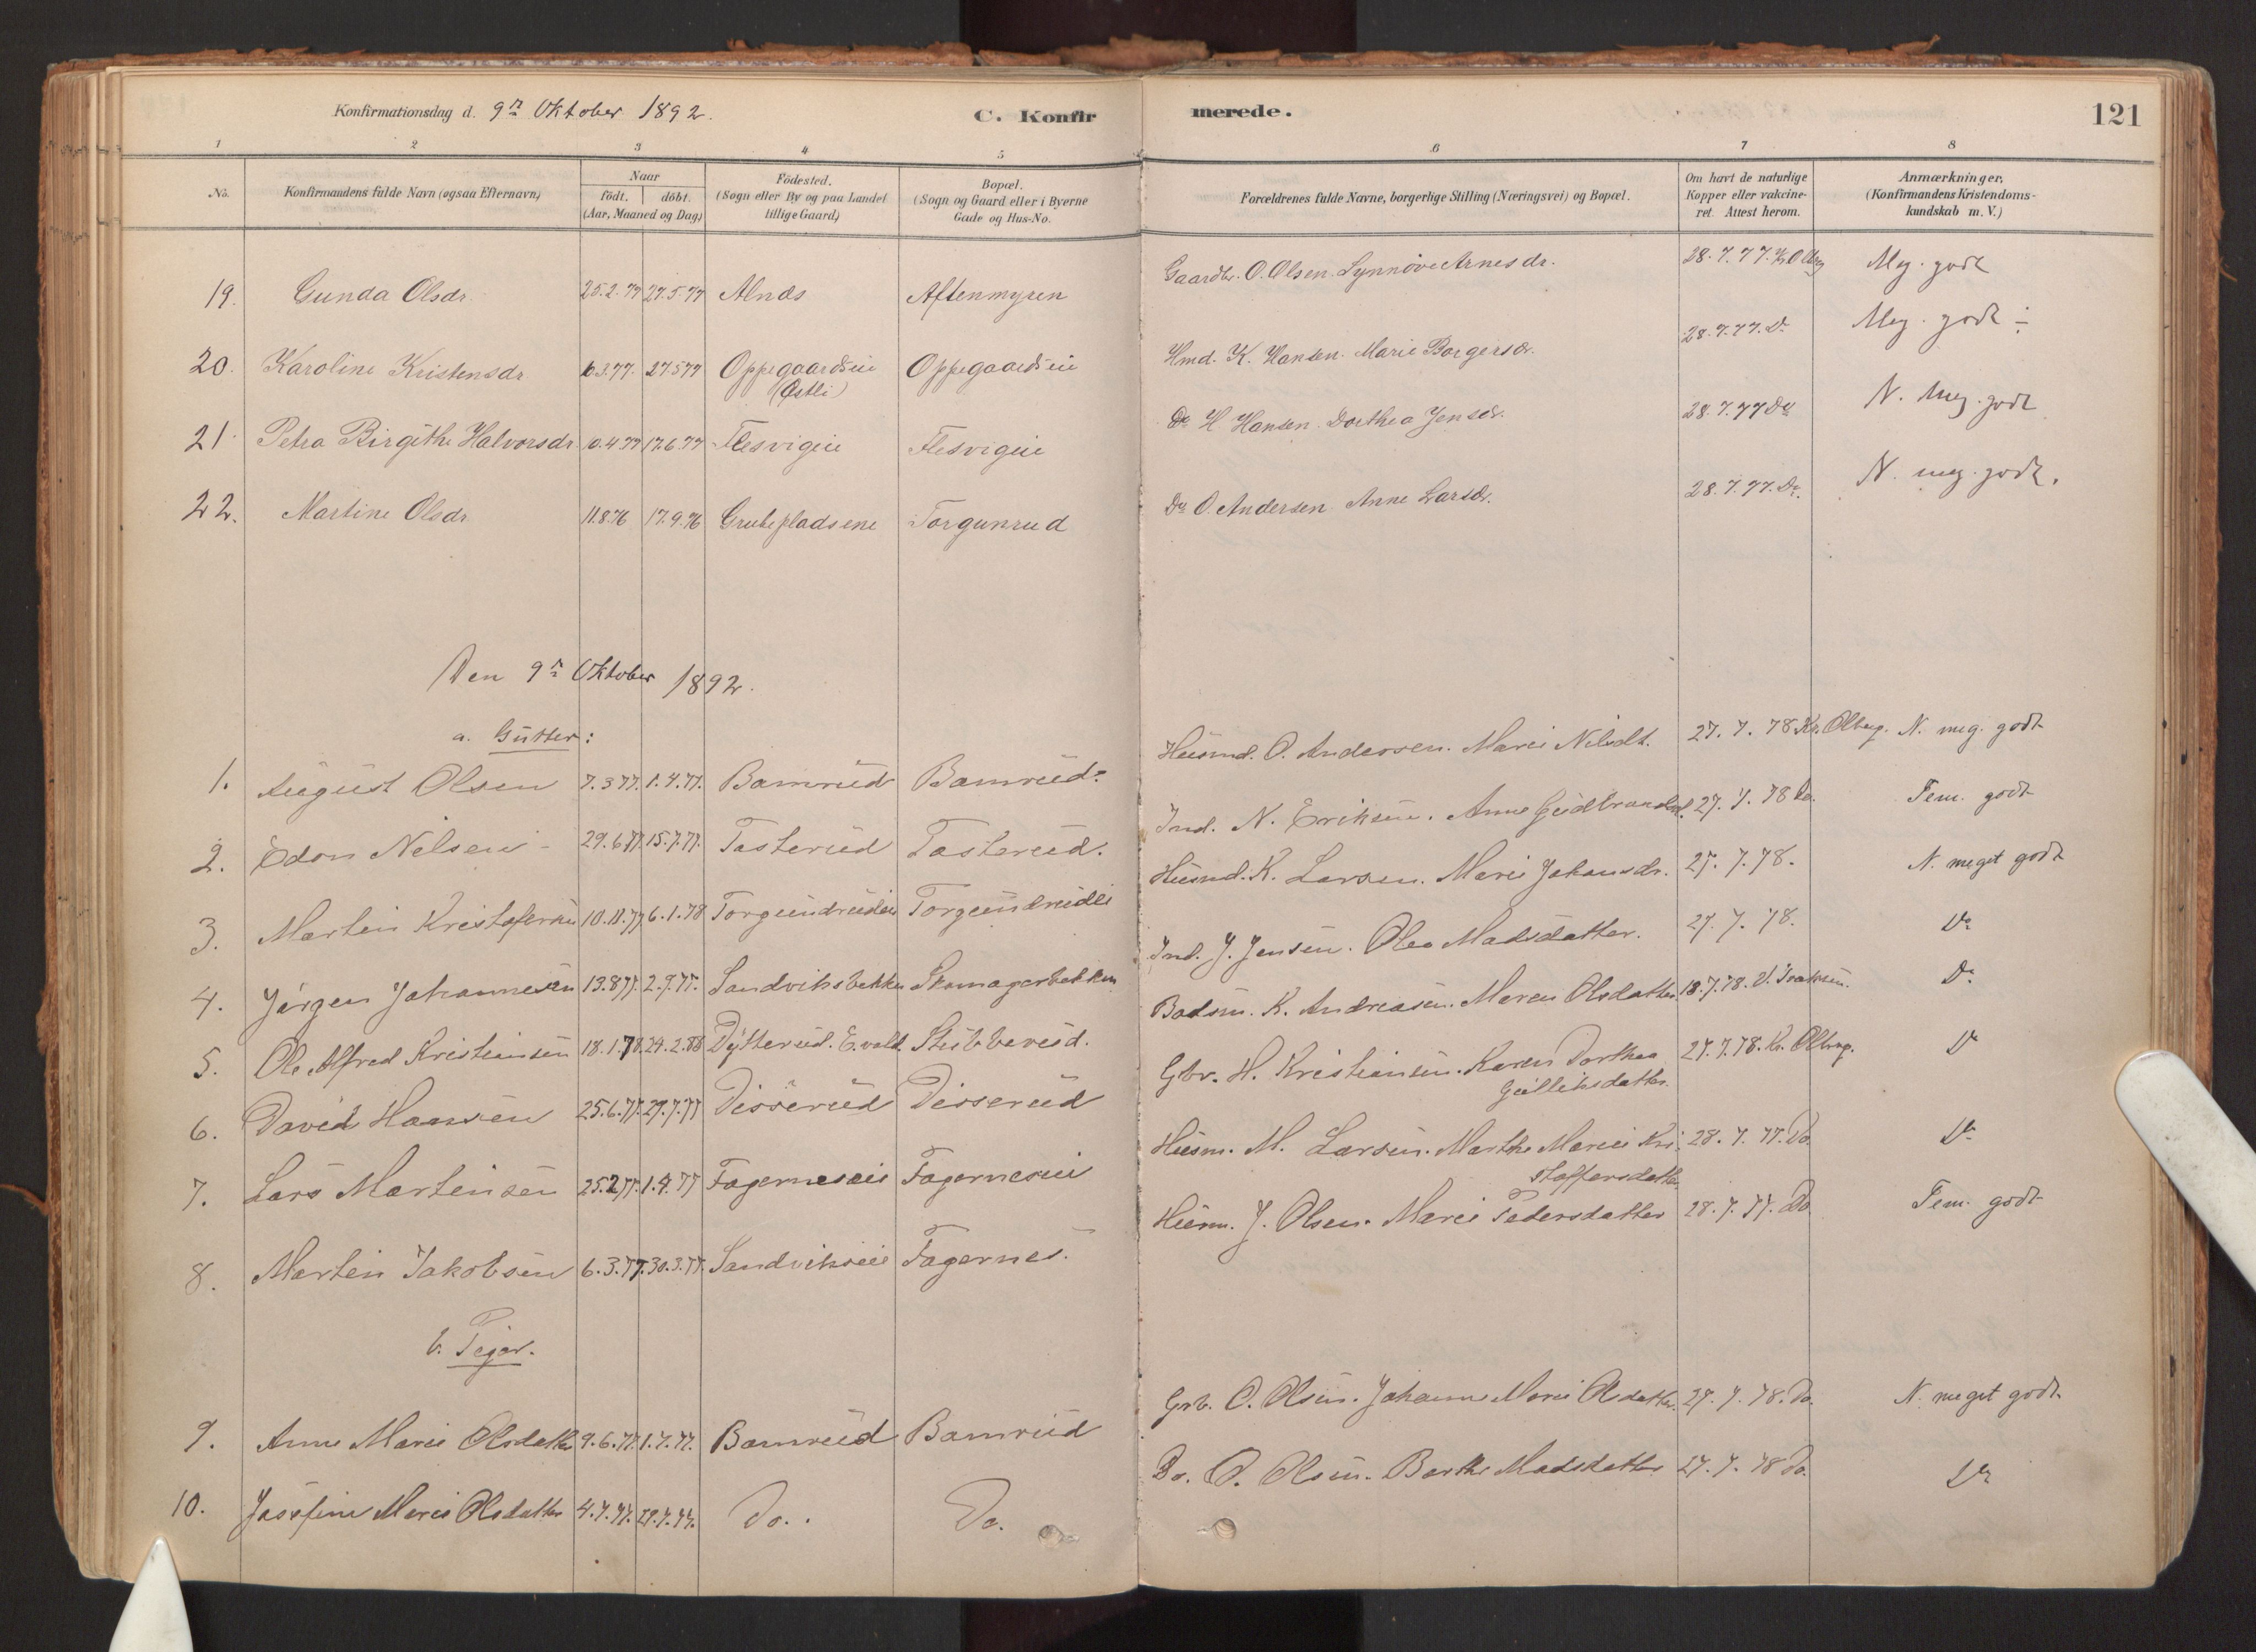 Konfirmationsdag d. 9de Oktober 1892. C. Konfirmerede. 121
1 2 3 4 5 6 7 8
No. Konfirmandens fulde Navn (ogsaa Efternavn) Naar födt. döbt. (Aar, Maaned og Dag) Födested. (Sogn eller By og paa Landet tillige Gaard) Bopæl. (Sogn og Gaard eller i Byerne Gade og Hus-No. Forældrenes fulde Navne, borgerlige Stilling (Næringsvei) og Bopæl. Om havt de naturlige Kopper eller vakcineret. Attest herom. Anmærkninger, (Konfirmandens Kristendomskundskab m. V.)
19. Gunda Olsdr. 25.2.77 27.5.77 Alnæs Aftenmyren Gaardbr. O. Olsen. Synnöve Arnesdr. 28.7.77. Meg. godt
20. Karoline Kristensdr. 6.3.77. 27.5.77 Oppegaardseie (Østli) Oppegaardseie Hmd. K. Hansen. Marie Borgersdr. 28.7.77. Do Meg. godt ÷
21. Petra Birgithe Halvorsdr. 10.4.77 17.6.77 Flesvigeie Flesvigeie Do H. Hansen. Dorthea Jensdr. 28.7.77 Do N. meg. godt
22. Martine Olsdr. 11.8.76 17.9.76 Grubepladsene Torgunrud Do O. Andersen. Anne Larsdr. 28.7.77. Do. N. meg. godt.
Den 9de Oktober 1892.
a. Gutter:
1. August Olsen 7.3.77. 1.4.77. Bamrud Bamrud. Husmd. O. Andersen. Marie Nilsdt. 27.7.78 Kr. Olberg. N. meg. godt
2. Edon Nilsen 29.6.77. 15.7.77. Tasterud Tasterud. Ind. N. Eriksen. Anne Gudbrandsd. 27.7.78 Do. Tem. godt
3. Martin Kristofersen 10.11.77 6.1.78 Torgundrudeie Torgundrudei Husmd. K. Larsen. Marie Johansdr. 27.7.78. N. meget godt
4. Jörgen Johannesen 13.8.77. 2.9.77. Sandviksbekken Skomagerbekken Ind. J. Jensen. Olea Madsdatter. 27.7.78. Do
5. Ole Alfred Kristiansen 18.1.78. 24.2.88 Dytterud. E.vold. Stubberud. Badsm. K. Andreasen. Maren Olsdatter 18.7.78. Do
6. David Hansen 25.6.77. 29.7.77 Disserud Disserud Gbr. H. Kristiansen. Karen Dorthea Gulliksdatter. 27.7.78. Kr. Olberg. Do
7. Lars Martinsen 25.2.77. 1.4.77 Fagerneseie Fagerneseie Husm. M. Larsen. Marthe Marie Kristoffersdatter 28.7.77. Do. Do
8. Martin Jakobsen 6.3.77. 30.3.77. Sandvikseie Fagernes. Husm. J. Olsen. Marie Pedersdatter 28.7.77. Do. Tem. godt
b. Piger.
9. Anne Marie Olsdatter 9.6.77. 1.7.77. Bamrud Bamrud Grb. O. Olsen. Johanne Marie Olsdatter. 27.7.78. Do. N. meget godt.
10. Josefine Marie Olsdatter 4.7.77. 29.7.77. Do. Do. Do. O. Olsen. Berthe Madsdatter 27.7.78 Do. Do